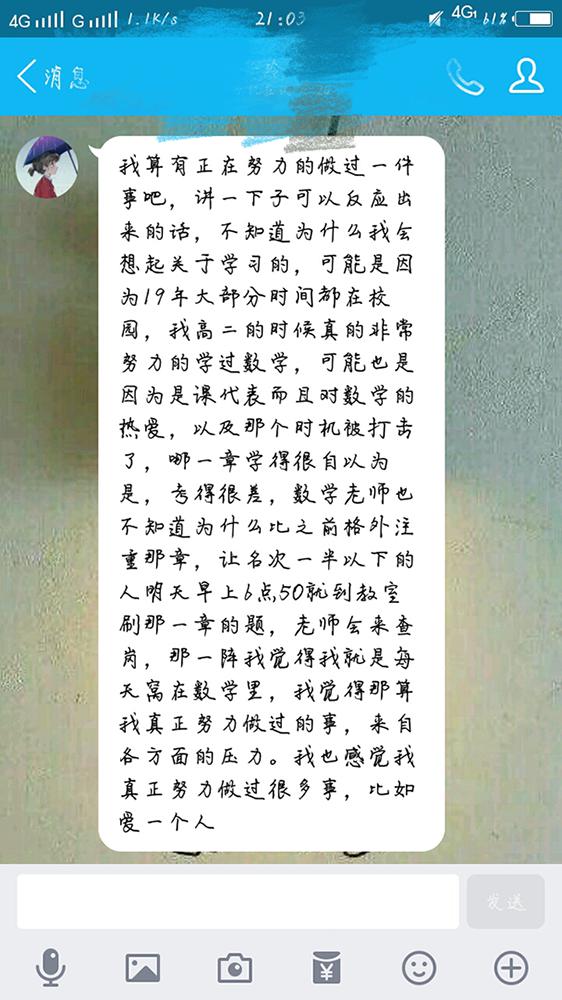 4G G 1.1K/s 21:03 4G1 61%
消息
我算有正在努力的做过一件
事吧，讲一下子可以反应出
来的话，不知道为什么我会
想起关于学习的，可能是因
为19年大部分时间都在校
园，我高二的时候真的非常
努力的学过数学，可能也是
因为是课代表而且对数学的
热爱，以及那个时机被打击
了，哪一章学得很自以为
是，考得很差，数学老师也
不知道为什么比之前格外注
重那章，让名次一半以下的
人明天早上6点,50就到教室
刷那一章的题，老师会来查
岗，那一阵我觉得我就是每
天窝在数学里，我觉得那算
我真正努力做过的事，来自
各方面的压力。我也感觉我
真正努力做过很多事，比如
爱一个人
发送